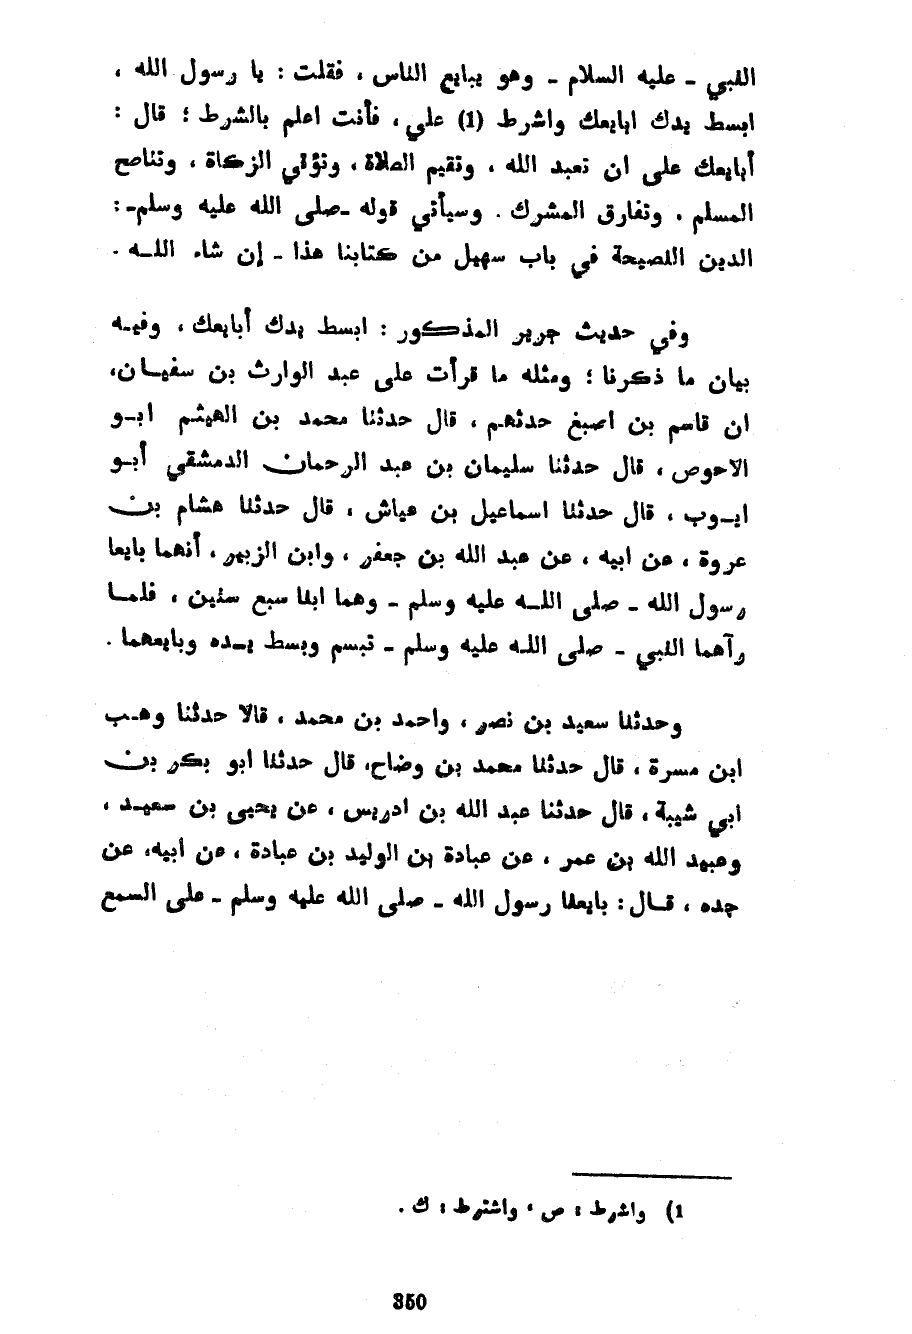 النبي ـ عليه السلام ـ وهو يبايع الناس ، فقلت : يا رسول الله ،
ابسط يدك ابايعك واشرط (1) علي ، فأنت اعلم بالشرط ؛ قال :
أبايعك على ان تعبد الله ، وتقيم الصلاة ، وتؤتي الزكاة ، وتناصح
المسلم ، وتفارق المشرك . وسيأتي قوله ـ صلى الله عليه وسلم ـ :
الدين النصيحة في باب سهيل من كتابنا هذا ـ إن شاء اللـه .
وفي حديث جرير المذكور : ابسط يدك أبايعك ، وفيـه
بيان ما ذكرنا ؛ ومثله ما قرأت على عبد الوارث بن سفيـان،
ان قاسم بن اصبغ حدثهـم ، قال حدثنا محمد بن الهيثم ابـو
الاحوص ، قال حدثنا سليمان بن عبد الرحمان الدمشقي أبـو
ايـوب ، قال حدثنا اسماعيل بن عياش ، قال حدثنا هشام بن
عروة ، عن ابيه ، عن عبد الله بن جعفر ، وابن الزبير ، أنهما بايعا
رسول الله ـ صلى اللـه عليه وسلم ـ وهما ابنا سبع سنين ، فلمـا
رآهما النبي ـ صلى الله عليه وسلم ـ تبسم وبسط يـده وبايعهما .
وحدثنا سعيد بن نصر ، واحمد بن محمد ، قالا حدثنا وهـب
ابن مسرة ، قال حدثنا محمد بن وضاح، قال حدثنا ابو بكر بن
ابي شيبة ، قال حدثنا عبد الله بن ادريس ، عن يحيى بن سعيـد ،
وعبيد الله بن عمر ، عن عبادة بن الوليد بن عبادة ، عن أبيه، عن
جده ، قـال : بايعنا رسول الله ـ صلى الله عليه وسلم ـ على السمع
1) واشرط : ص ، واشترط : ك .
350